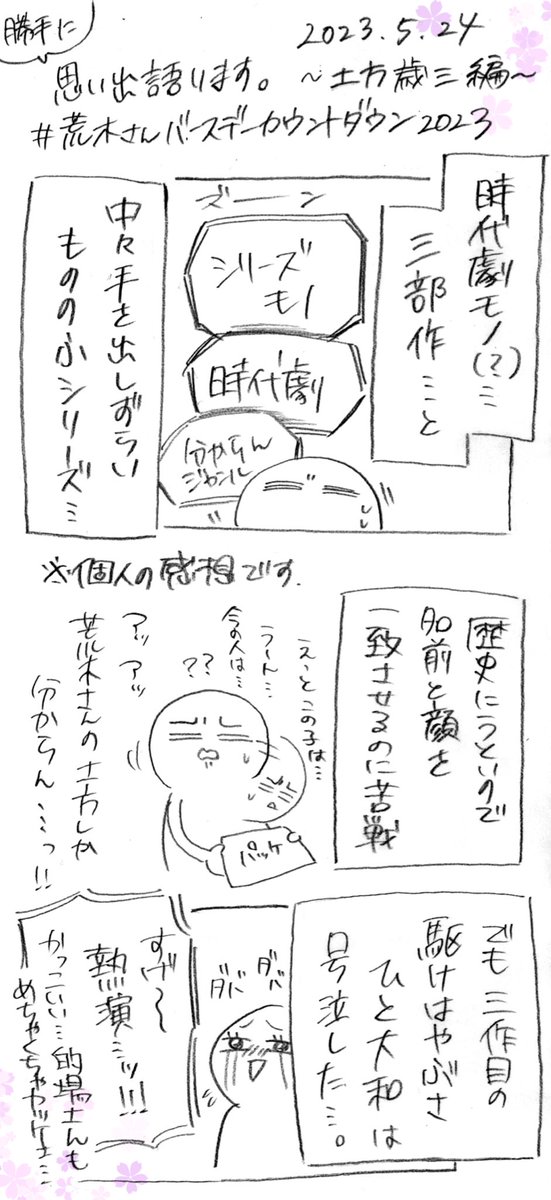 勝手に
2023.5.24
思い出語ります。〜土方歳三編〜
#荒木さんバースデーカウントダウン2023
時代劇モノ(?)…
三部作…と
ズーン
シリーズ
モノ
時代劇
分からん
ジャンル
中々手を出しずらい
もののふシリーズ…
※個人の感想です.
歴史にうといので
名前と顔を
一致させるのに苦戦
えーとこの子は…
うーん…
今の人は…
??
パッケ
アッ アッ
荒木さんの土方しか
分からん…っ!!
でも 三作目の
駆けはやぶさ
ひと大和は
号泣した…。
ダバ
ダバ
すげ〜
熱演…ッ!!!
かっこいい… 的場さんも
めちゃくちゃカッケェ…